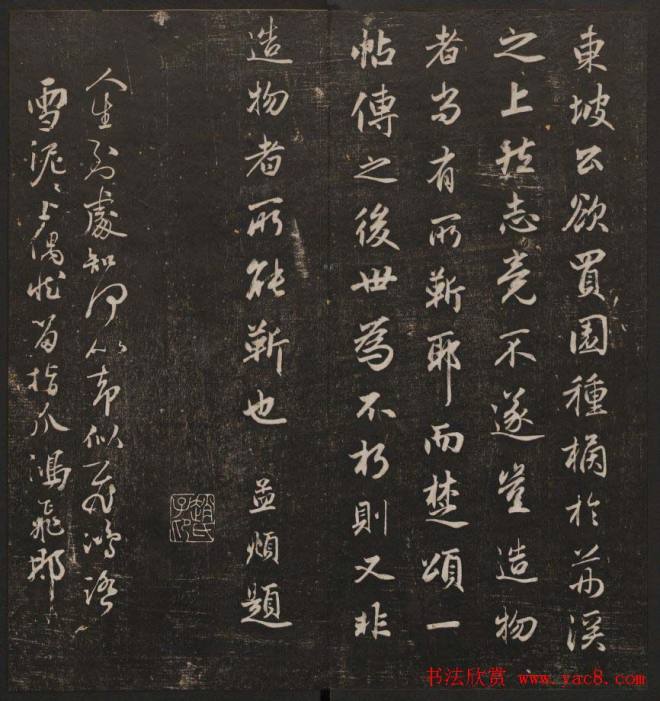 東坡公欲買園種橘於荆溪
之上然志竟不遂豈造物
者尚有所靳耶而楚頌一
帖傳之後世為不朽則又非
造物者所能靳也 孟頫題
趙氏子昂
人生到處知何以却似飛鴻踏
雪泥〻上偶然留指爪鴻飛那
书法欣赏 www.yac8.com